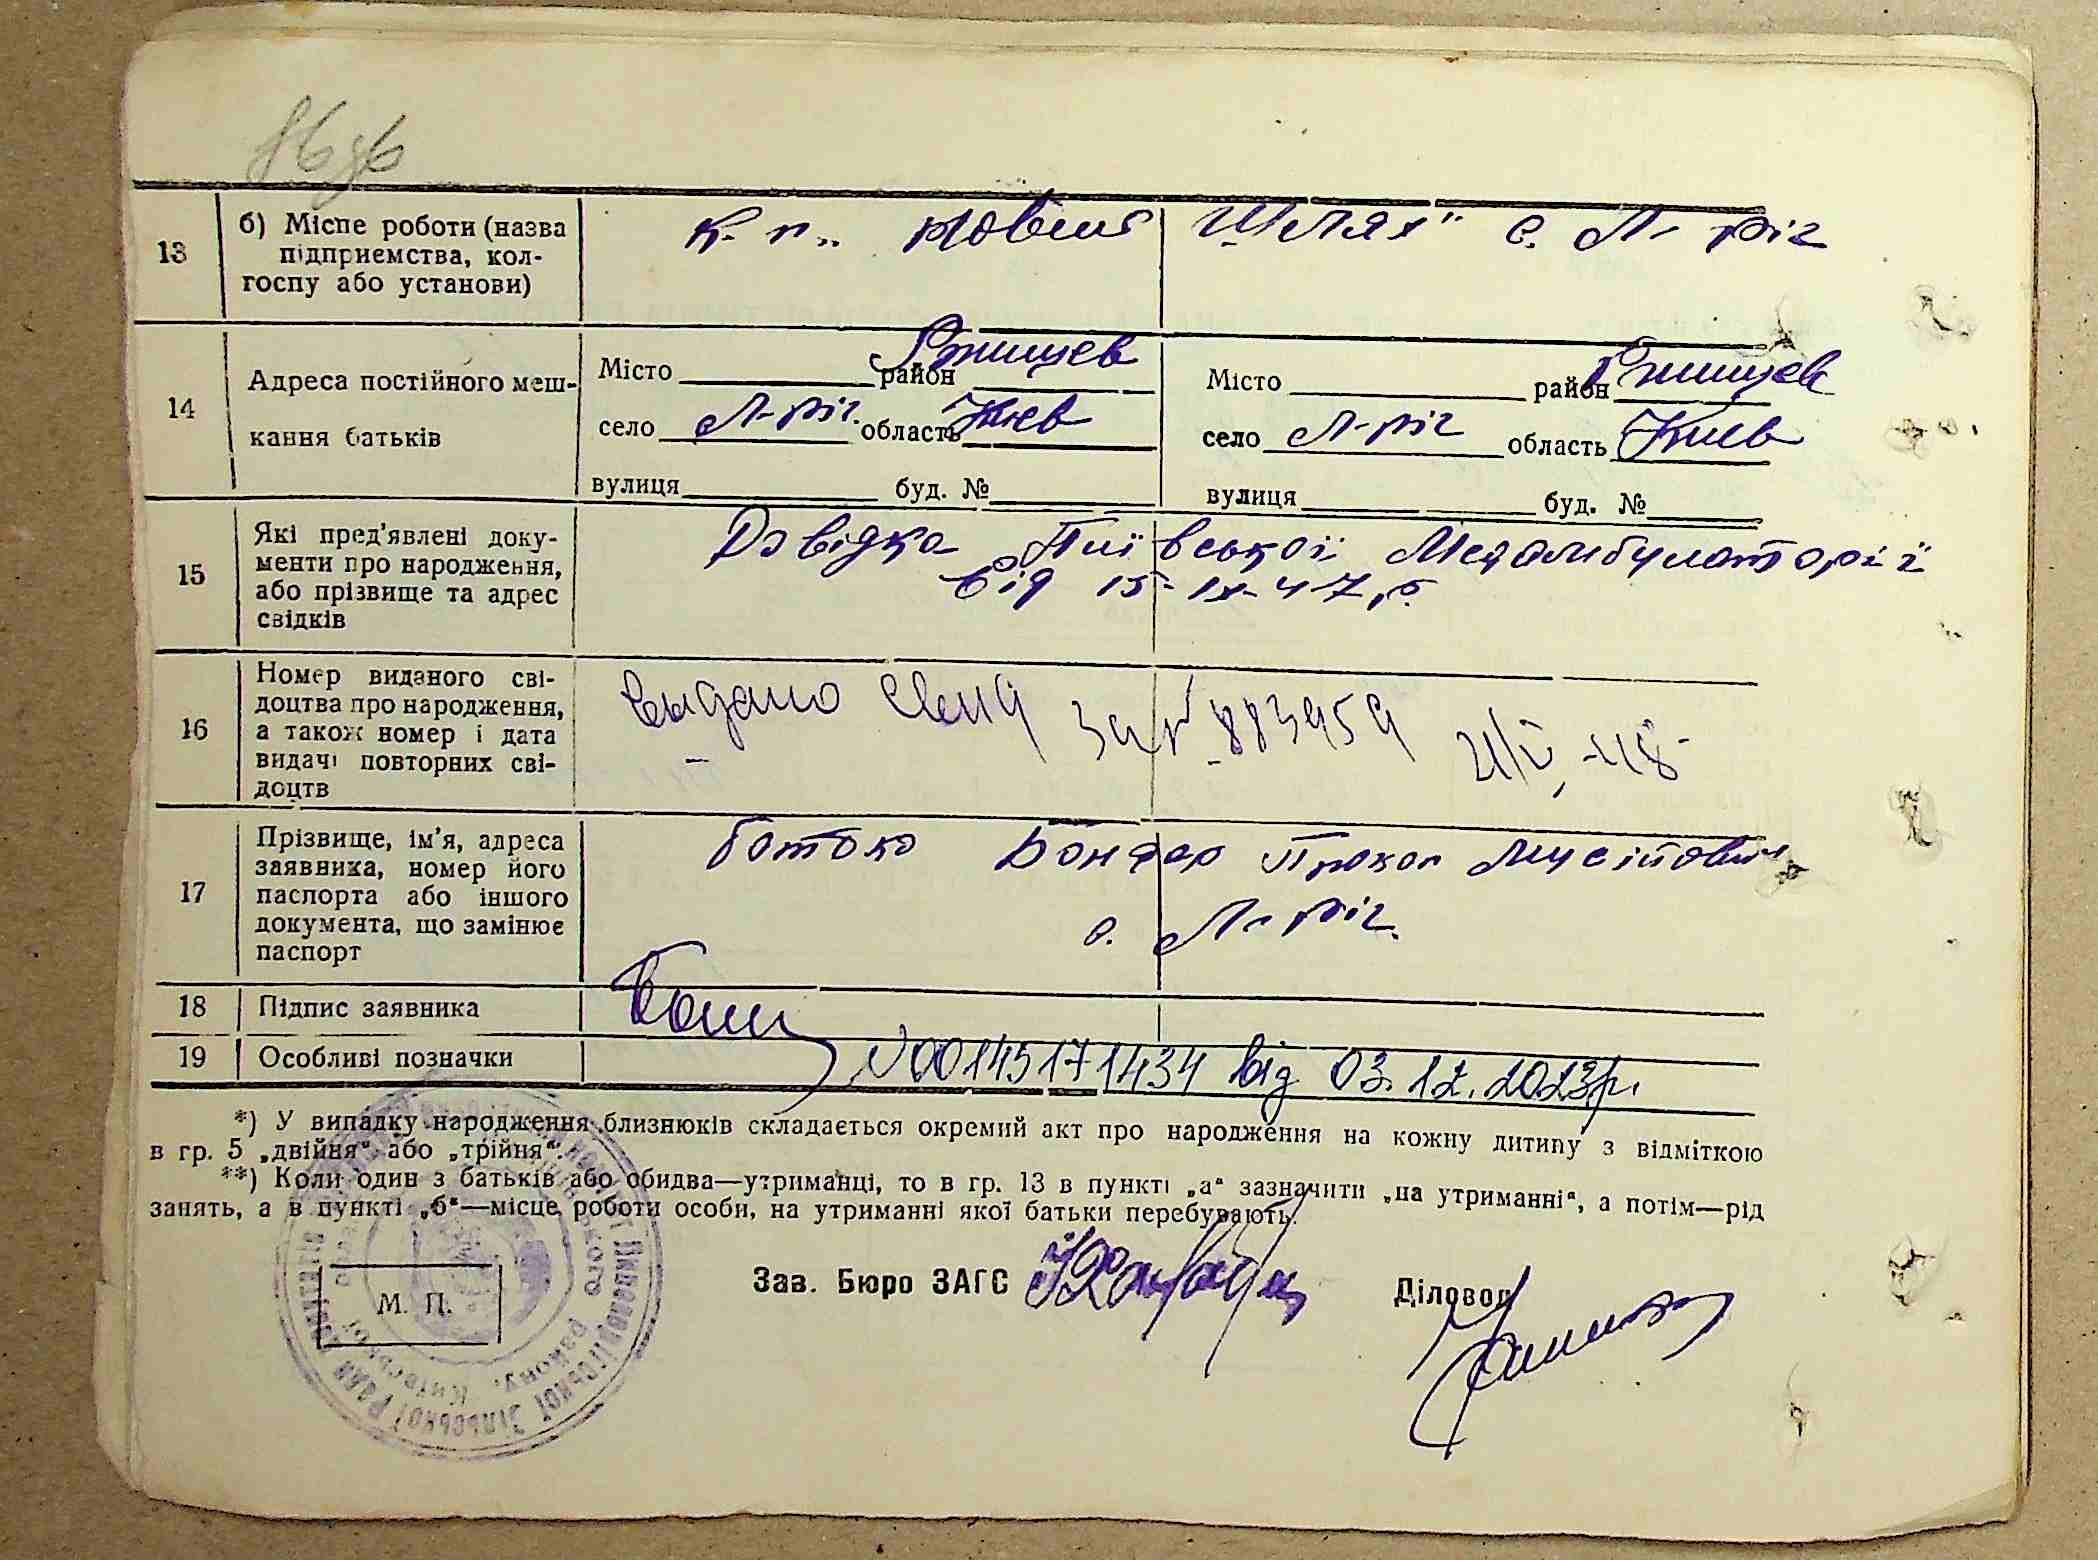 13
б) Місце роботи (назва
підприємства, кол-
госпу або установи)
к. г. „Новий Шлях" с. Л-Ріг
14
Адреса постійного меш-
кання батьків
Місто район Ржищев
село Л-Ріг. область Киев
вулиця буд. №
Місто район Ржищев
село Л-Ріг область Киев
вулиця буд. №
15
Які пред'явлені доку-
менти про народження,
або прізвище та адрес
свідків
Довідка Пиївської Медамбулаторії
від 15-IX-47 р.
16
Номер виданого сві-
доцтва про народження,
а також номер і дата
видачі повторних сві-
доцтв
Выдано за № 883959
17
Прізвище, ім'я, адреса
заявника, номер його
паспорта або іншого
документа, що замінює
паспорт
батько Бондар Прокоп Мусійович
с. Л-Ріг.
18
Підпис заявника
19
Особливі позначки
№00145171434 від 03.12.2023р.
*) У випадку народження близнюків складається окремий акт про народження на кожну дитину з відміткою
в гр. 5 „двійня" або „трійня".
**) Коли один з батьків або обидва—утриманці, то в гр. 13 в пункті „а" зазначити „на утриманні", а потім—рід
занять, а в пункті „б"—місце роботи особи, на утриманні якої батьки перебувають.
Зав. Бюро ЗАГС
Діловод
М. П.